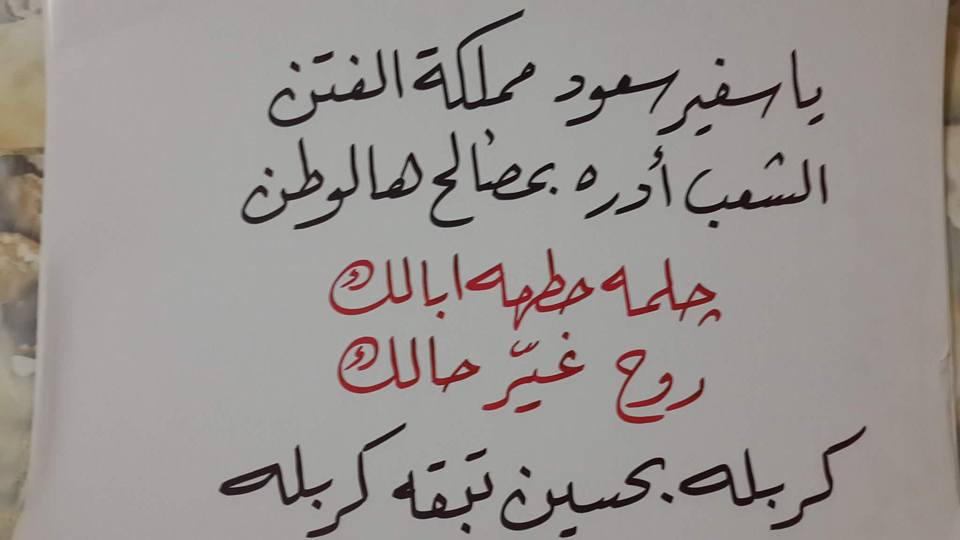 يا سفير سعود مملكة الفتن
الشعب أدره بمصالح هالوطن
چلمه حطهه ابالك
روح غيّر حالك
كربله بحسين تبقه كربله